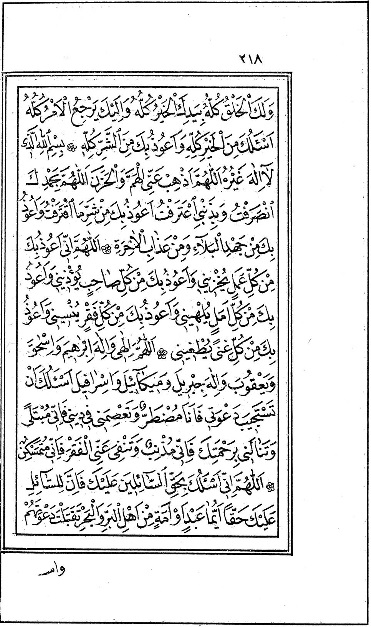 ٢١٨
وَلَكَ الْخَلْقُ كُلُّهُ بِيَدِكَ الْخَيْرُ كُلُّهُ وَاِلَيْكَ يَرْجِعُ الْاَمْرُ كُلُّهُ
اَسْئَلُكَ مِنَ الْخَيْرِ كُلِّهِ وَاَعُوذُ بِكَ مِنَ الشَّرِّ كُلِّهِ ۞ بِسْمِ اللّٰهِ الَّذِي
لَآ اِلٰهَ غَيْرُهُ اَللّٰهُمَّ اَذْهِبْ عَنِّي الْهَمَّ وَالْحَزَنَ اَللّٰهُمَّ بِحَمْدِكَ
انْصَرَفْتُ وَبِذَنْبِي اعْتَرَفْتُ اَعُوذُ بِكَ مِنْ شَرِّ مَا اقْتَرَفْتُ وَاَعُوذُ
بِكَ مِنْ جَهْدِ الْبَلَآءِ وَمِنْ عَذَابِ الْاٰخِرَةِ ۞ اَللّٰهُمَّ اِنِّي اَعُوذُ بِكَ
مِنْ كُلِّ عَمَلٍ يُخْزِينِي وَاَعُوذُ بِكَ مِنْ كُلِّ صَاحِبٍ يُؤْذِينِي وَاَعُوذُ
بِكَ مِنْ كُلِّ اَمَلٍ يُلْهِينِي وَاَعُوذُ بِكَ مِنْ كُلِّ فَقْرٍ يُنْسِينِي وَاَعُوذُ
بِكَ مِنْ كُلِّ غِنًى يُطْغِينِي ۞ اَللّٰهُمَّ اِلٰهِي وَاِلٰهَ اِبْرٰهِيمَ وَاِسْحٰقَ
وَيَعْقُوبَ وَاِلٰهَ جِبْرِيلَ وَمِيكَآئِيلَ وَاِسْرَافِيلَ اَسْئَلُكَ اَنْ
تَسْتَجِيبَ دَعْوَتِي فَاَنَا مُضْطَرٌّ وَتَعْصِمَنِي فِي دِينِي فَاِنِّي مُبْتَلًى
وَتَنَالَنِي بِرَحْمَتِكَ فَاِنِّي مُذْنِبٌ وَتَنْفِيَ عَنِّي الْفَقْرَ فَاِنِّي مُتَمَسْكِنٌ
۞ اَللّٰهُمَّ اِنِّي اَسْئَلُكَ بِحَقِّ السَّآئِلِينَ عَلَيْكَ فَاِنَّ لِلسَّآئِلِ
عَلَيْكَ حَقًّا اَيُّمَا عَبْدٍ اَوْ اَمَةٍ مِنْ اَهْلِ الْبَرِّ وَالْبَحْرِ تَقَبَّلْتَ دَعْوَتَهُمْ